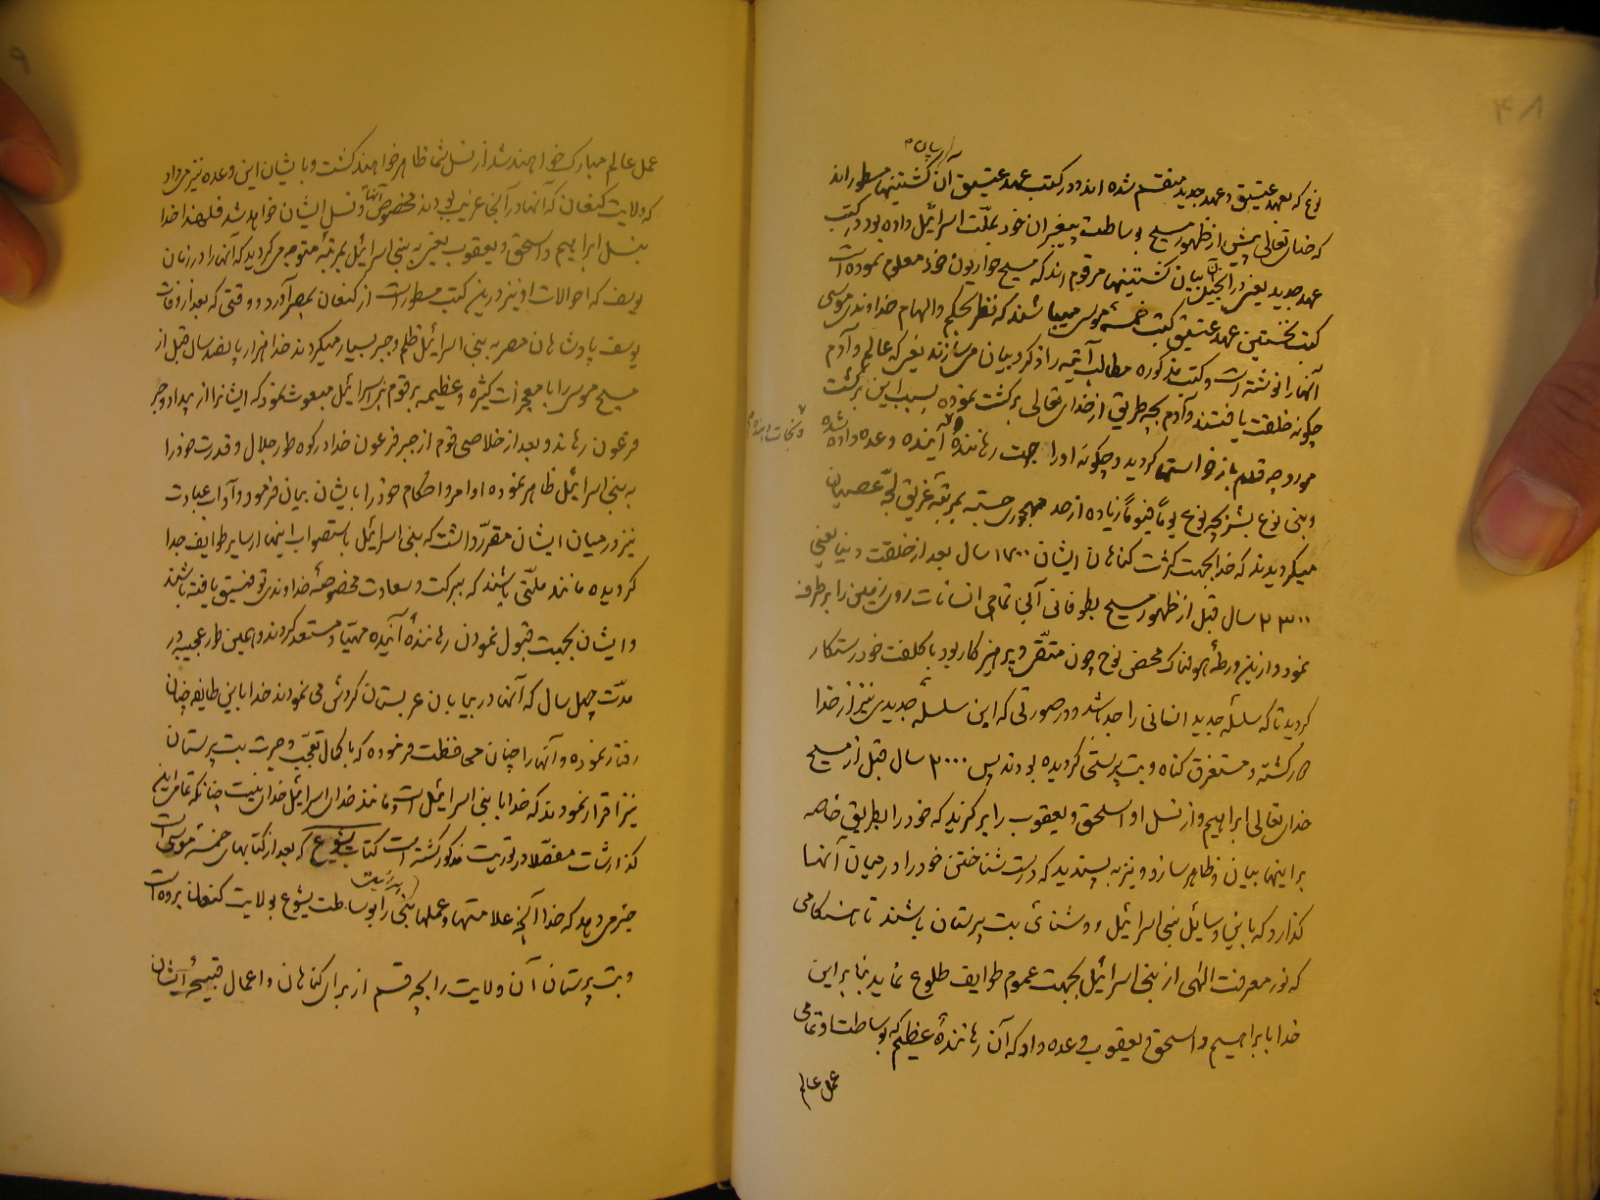 نوع که بعهد عتیق و عهد جدید منقسم شده اند و در کتب عهد عتیق آن گشتنیها مسطوراند
که خدای تعالی پیش از ظهور مسیح بوساطت پیغمبران خود بملّت اسرائیل داده بود و در کتب
عهد جدید یعنی در انجیل بیان گشتنیها مرقوم اند که مسیح حواریون خود معلوم نموده است
کتب نخستین عهد عتیق کتب خمسهٔ موسی میباشند که نظر بحکم والهام خداوندی موسی
آنها را نوشته است و کتب مذکوره مطالب آتیه را ذکر و بیان میسازند یعنی که عالم و آدم
چگونه خلقت یافتند و آدم بچه طریق از خدای تعالی برگشت نموده بسبب این برگشت
مورد چه قلم بازخواست گردید و چگونه او را جهت رهانندهٔ آینده وعده داده شده
و نجات دهنده
و بنی نوع بشر بچه نوع یوماً فیوماً زیاده از حد مهجوری جسته بمرتبه غریق لجّهٔ عصیان
میگردیدند که خدا بجهت کثرت گناهان ایشان ۱۷۰۰ سال بعد از خلقت دنیا یعنی
۲۳۰۰ سال قبل از ظهور مسیح بطوفانی آبی تمامی انسانات روی زمین را برطرف
نمود و از این ورطهٔ هولناک محض نوح چون متّقی و پرهیزکار بود با کلفت خود رستگار
گردید تا که سلسلهٔ جدید انسانی را جد باشد و در صورتی که این سلسلهٔ جدیدی نیز از خدا
برگشته و مستغرق گناه و بت پرستی گردیده بودند پس ۲۰۰۰ سال قبل از مسیح
خدای تعالی ابراهیم و از نسل او اسحق و یعقوب را برگزید که خود را بطریق خاصه
بر اینها بیان و ظاهر سازد و نیز به پسندید که درست شناختن خود را در میان آنها
گذارد که باین وسایل بنی اسرائیل روشنائی بت پرستان باشند تا هنگامی
که نور معرفت الهی از بنی اسرائیل بجهت عموم طوایف طلوع نماید بنا براین
خدا با ابراهیم و اسحق و یعقوب وعده داد که آن رهانندهٔ عظیم که بوساطت او تمامی
عمل عالم
عمل عالم مبارک خواهند شد از نسل شما ظاهر خواهند گشت و با یشان این وعده نیز می داد
که ولایت کنعان که آنها در آنجا غریب بودند مخصوص آنها و نسل ایشان خواهد شد فلهذا خدا
بنسل ابراهیم و اسحق و یعقوب یعنی به بنی اسرائیل بمرتبهٔ متوجه می گردید که آنها را در زمان
یوسف که احوالات او نیز در این کتب مسطور است از کنعان بمصر آورد و وقتی که بعد از وفات
یوسف پادشاهان مصر به بنی اسرائیل ظلم و جبر بسیار میکردند خدا هزار پانصد سال قبل از
مسیح موسی را با معجزات کثیره و عظیمه بر قوم بنی اسرائیل مبعوث نمود که ایشانرا از بیداد و جبر
فرعون رهاند و بعد از خلاصی قوم از جبر فرعون خدا در کوه طور جلال و قدرت خود را
به بنی اسرائیل ظاهر نموده اوامر و احکام خود را با یشان بیان فرمود و آداب عبادت
نیز در میان ایشان مقرّر داشت که بنی اسرائیل باستصواب اینها از سایر طوایف جدا
گردیده مانند ملّتی باشند که ببرکت و سعادت مخصوصهٔ خداوندی توفیق یافته باشند
و ایشان بجهت قبول نمودن رهانندهٔ آینده مهیّا و مستعد گردند و همین طور عجیبه در
مدّت چهل سال که آنها در بیابان عربستان گردش می نمودند خدا باین طایفه چنان
رفتار نموده و آنها را چنان محافظت فرموده که با کمال تعجّب و حیرت بت پرستان
نیز اقرار نمودند که خدا با بنی اسرائیل است و مانند خدای اسرائیل خدای نیست چنانکه تمامی این
گذارشات مفصّلا در توریت مذکور گشته است کتاب یشوع که بعد از کتابهای خمسهٔ موسی است
خبر می دهد که خدا آنچه علامتها و عملها بنی را بوساطت یشوع بولایت کنعان برده است
و بت پرستان آن ولایت را بچه قسم از برای گناهان و اعمال قبیحهٔ ایشان